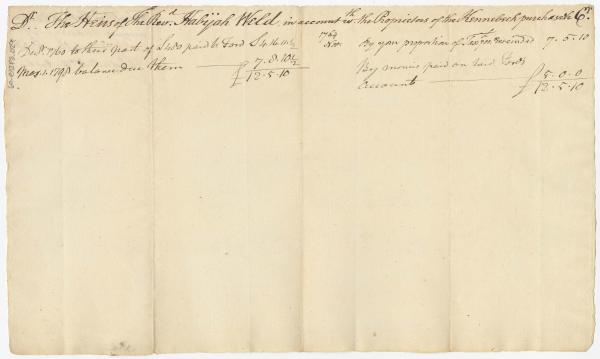 Dr. The Heirs of The Revd. Habijah Weld in account wth. the Proprietors of the Kennebeck purchase Cr.
to their part of paid to Ford £4.16.11½
May 1. balance due them 7.8.10½
£12.5.10
Nov. By your proportion of 7.5.10
By monies paid on said Fords
Account 5.0.0
£12.5.10